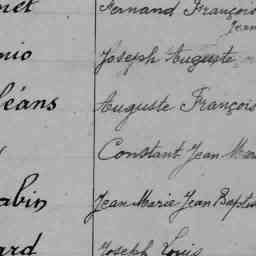 Fernand François
Jean
nio Joseph Auguste
léans Auguste François
Constant Jean Mar
abin Jean Marie Jean Baptis
ard Joseph Louis